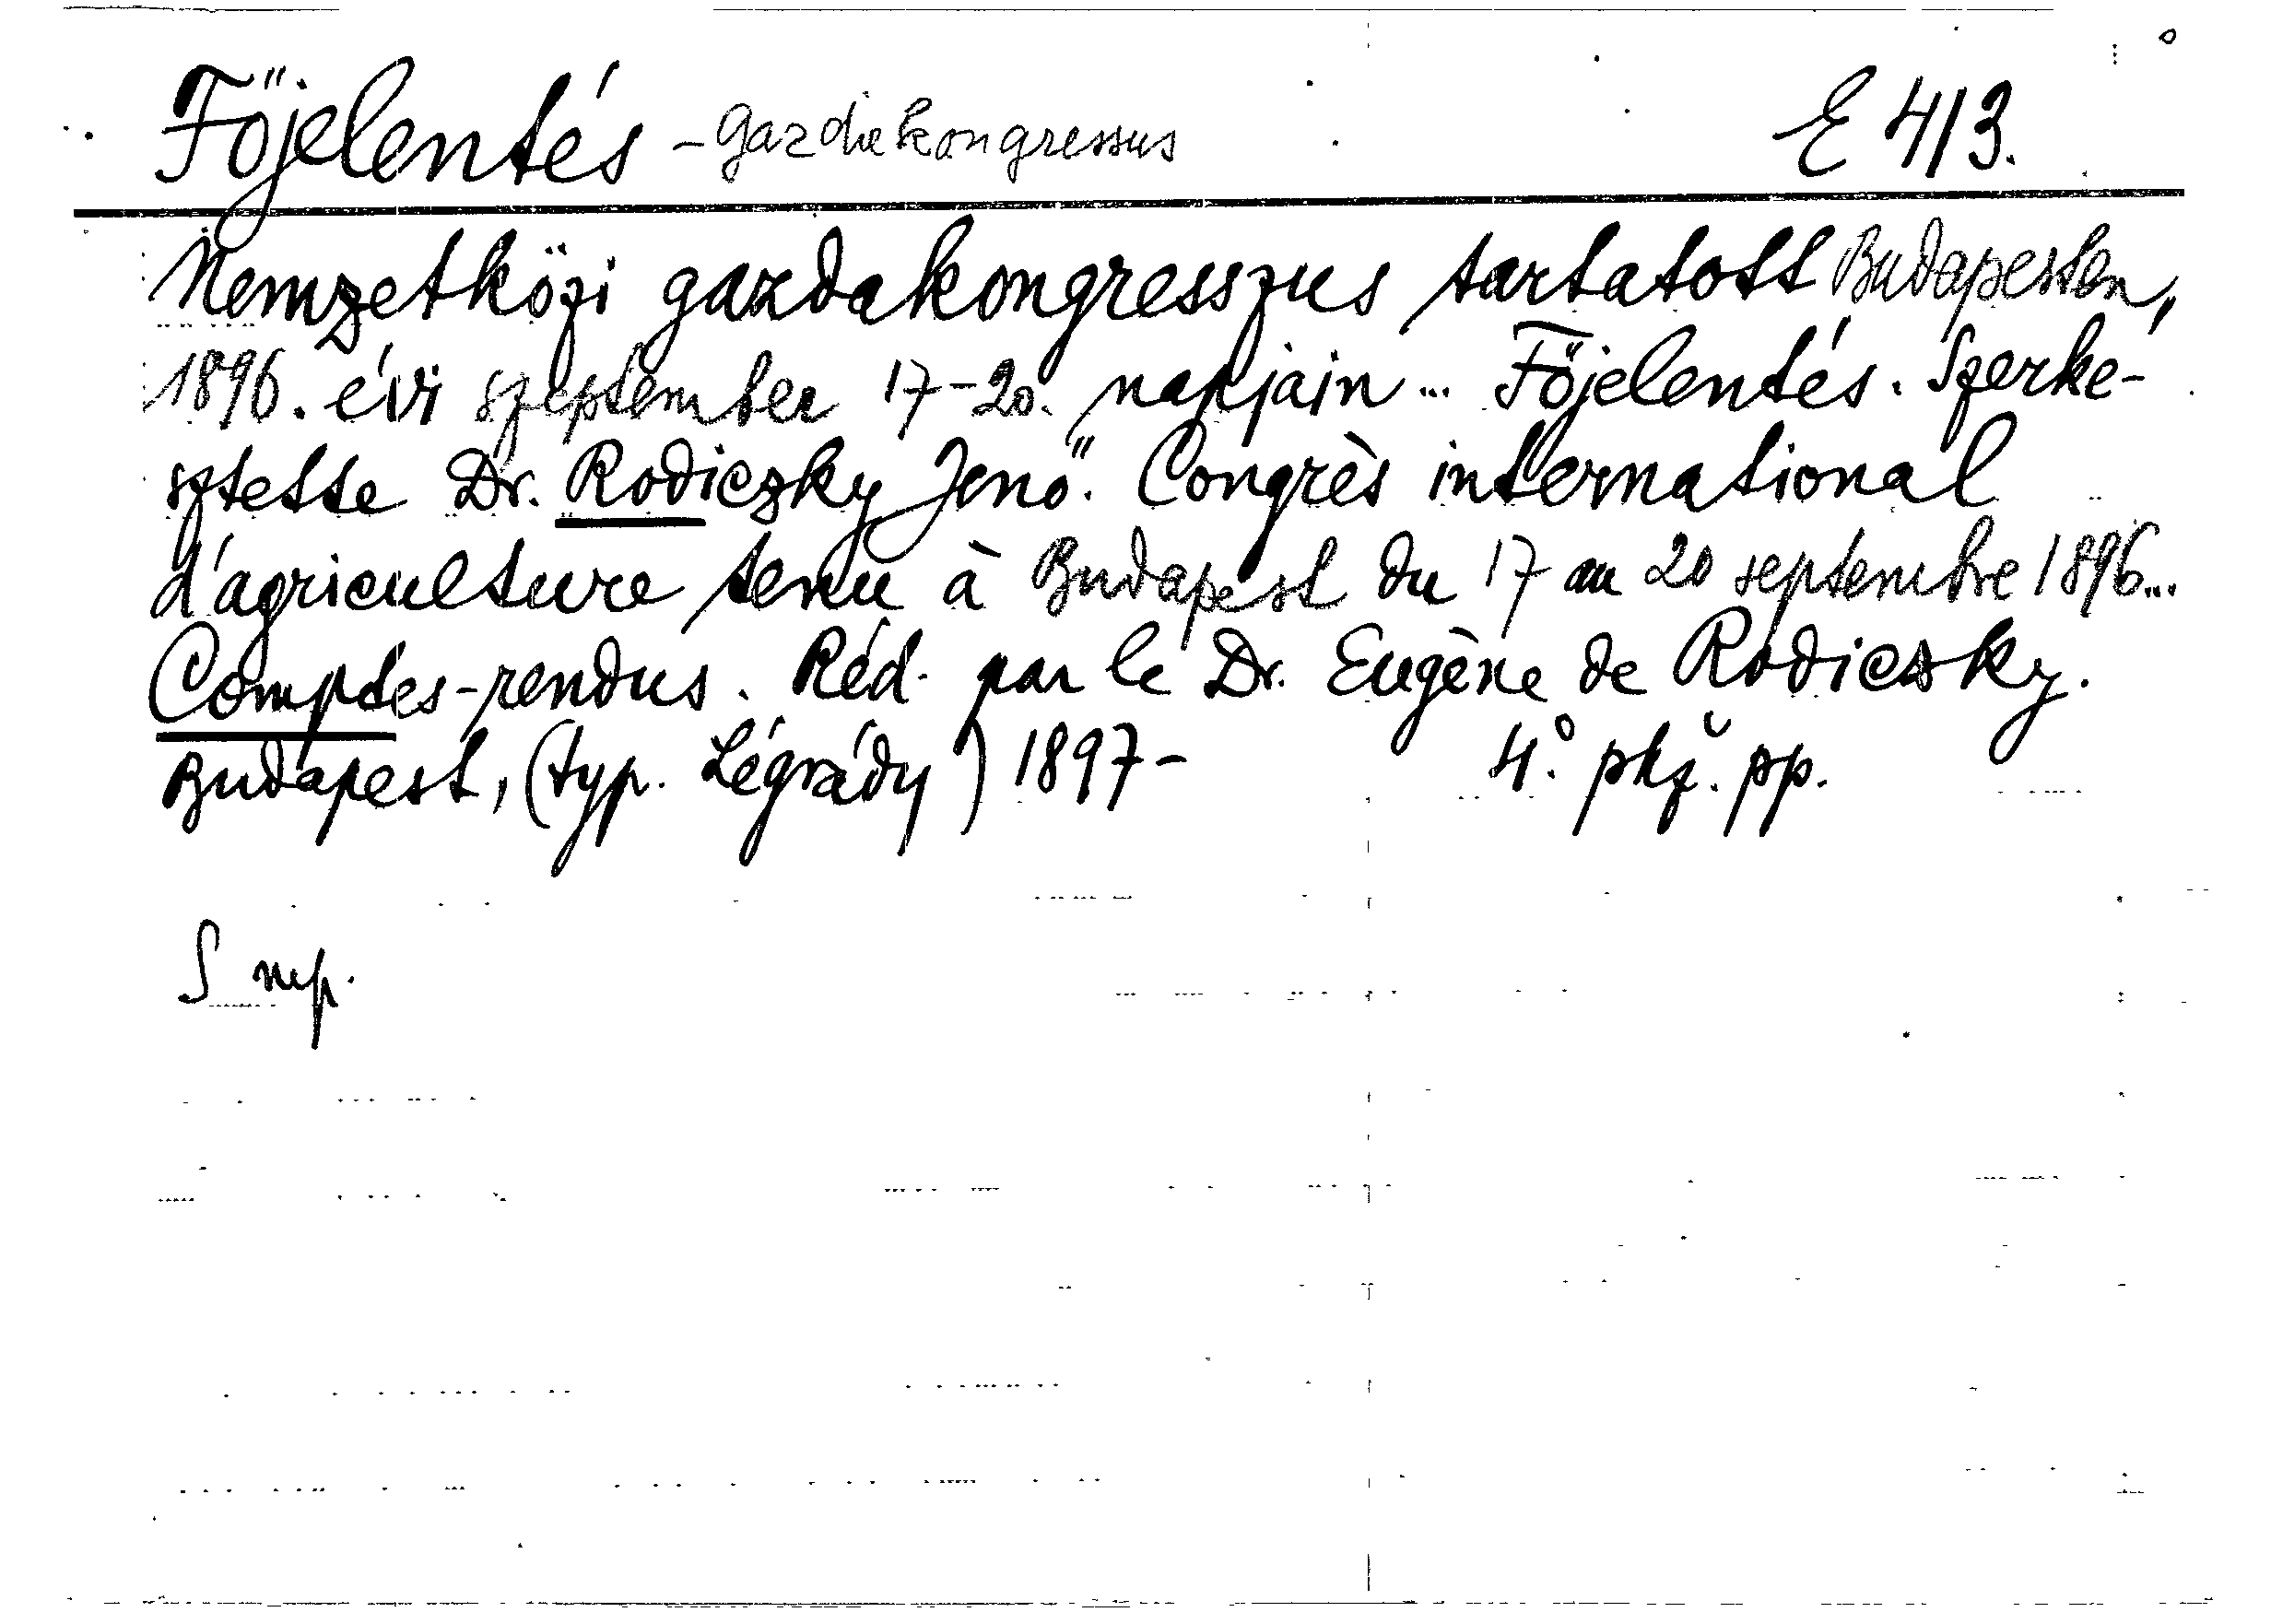 Főjelentés - Gazdakongressus E 413.
Nemzetközi gazdakongresszus tartatott Budapesten,
1896. évi szeptember 17-20. napjain... Főjelentés. Szerke-
sztette Dr. Rodiczky Jenő. Congrès international
d'agriculture tenu à Budapest du 17 au 20 septembre 1896...
Comptes-rendus. Réd. par le Dr. Eugène de Rodiczky.
Budapest, (typ. Légrády) 1897- 4° pp.
S